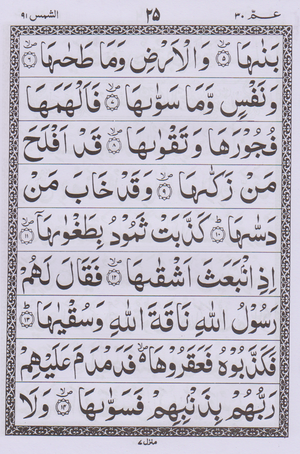 عـمّ ٣٠ ٢٥ الشمس ٩١
بَنٰىهَا ۪ۙ﴿۵﴾ وَ الۡاَرۡضِ وَمَا طَحٰىهَا ۪ۙ﴿۶﴾
وَنَفۡسٍ وَّمَا سَوّٰىهَا ۪ۙ﴿۷﴾ فَاَلۡهَمَهَا
فُجُوۡرَهَا وَتَقۡوٰىهَا ۪ۙ﴿۸﴾ قَدۡ اَفۡلَحَ
مَنۡ زَكّٰىهَا ۪ۙ﴿۹﴾ وَقَدۡ خَابَ مَنۡ
دَسّٰىهَا ؕ﴿۱۰﴾ كَذَّبَتۡ ثَمُوۡدُ بِطَغۡوٰىهَاۤ ۪ۙ﴿۱۱﴾
اِذِ انۡۢبَعَثَ اَشۡقٰىهَا ۪ۙ﴿۱۲﴾ فَقَالَ لَهُمۡ
رَسُوۡلُ اللّٰهِ نَاقَةَ اللّٰهِ وَسُقۡيٰهَا ؕ﴿۱۳﴾
فَكَذَّبُوۡهُ فَعَقَرُوۡهَا ۪ۙ فَدَمۡدَمَ عَلَيۡهِمۡ
رَبُّهُمۡ بِذَنۡۢبِهِمۡ فَسَوّٰىهَا ۪ۙ﴿۱۴﴾ وَلَا
منزل ٧